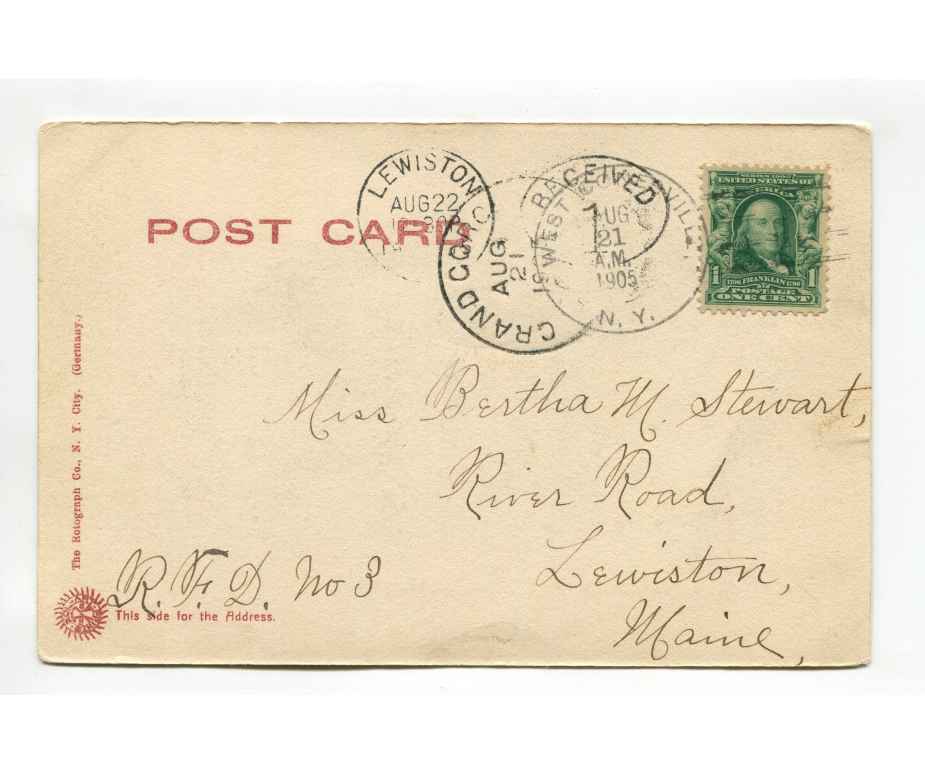 POST CARD
LEWISTON
AUG 22
GRAND CO
AUG
21
RECEIVED
AUG
21
A.M.
1905
WEST
VILLE
N. Y.
SERIES 1902
UNITED STATES OF
AMERICA
1706 FRANKLIN 1790
1 1
POSTAGE
ONE CENT
Miss Bertha M. Stewart,
River Road,
Lewiston,
Maine,
R. F. D. No 3
This side for the Address.
The Rotograph Co., N. Y. City. (Germany.)